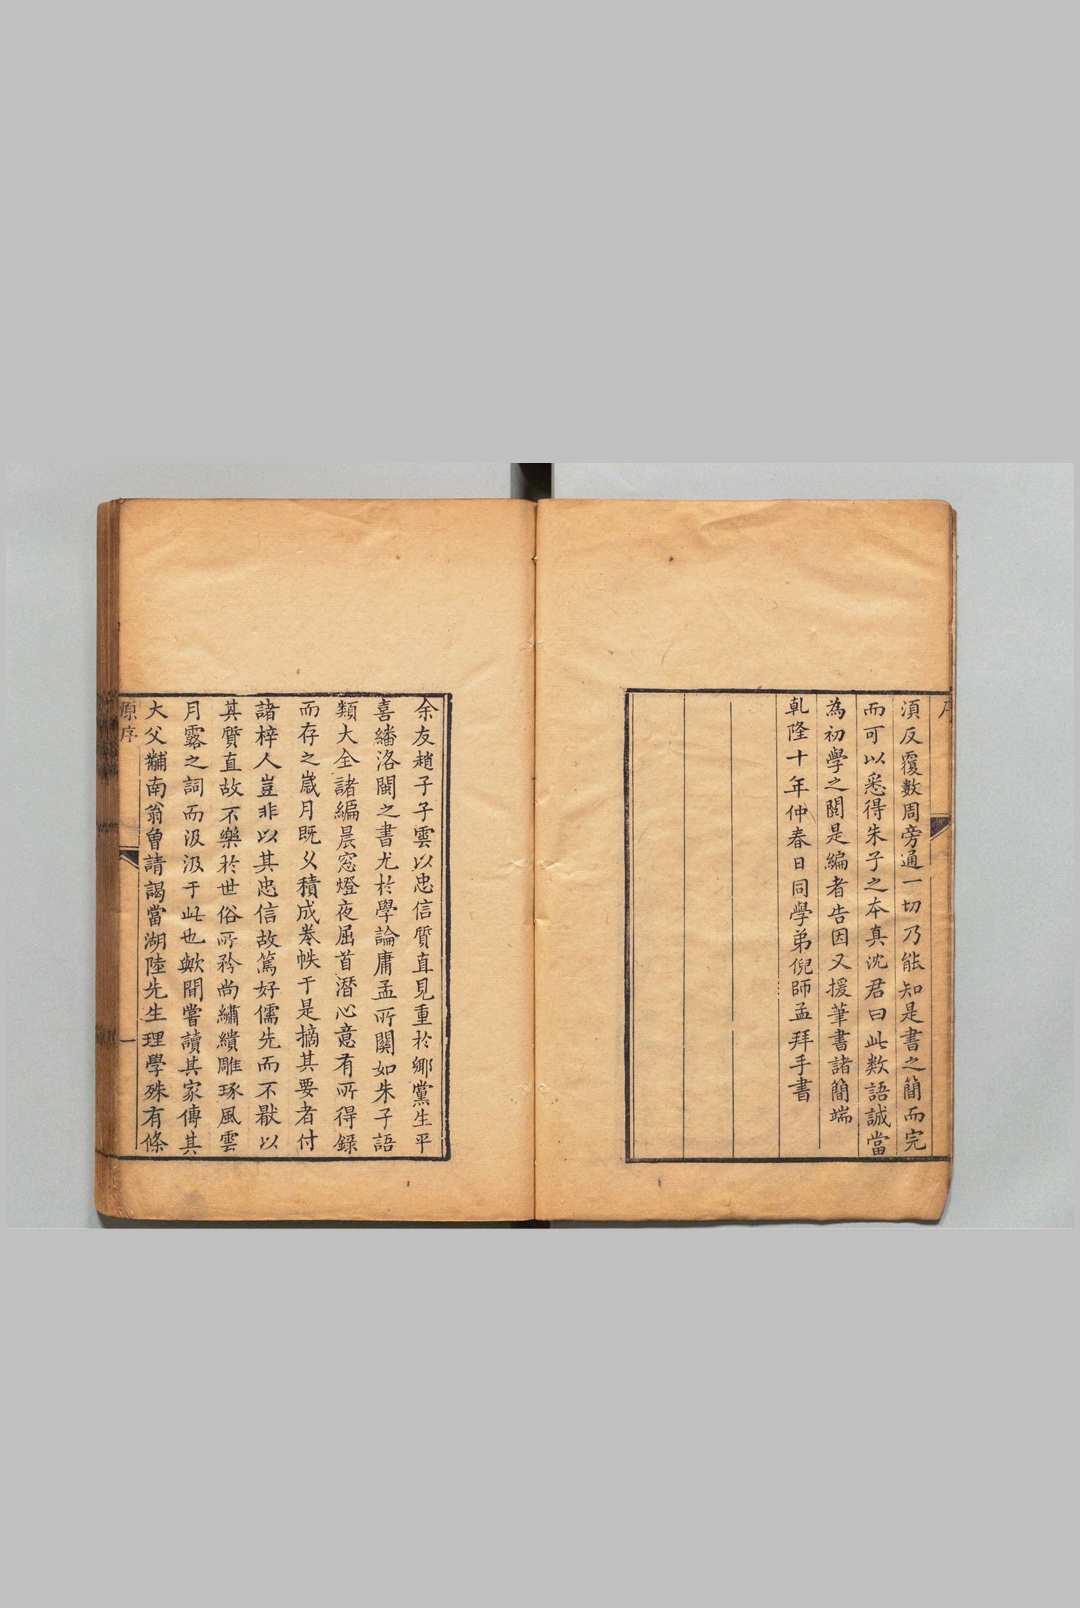 序
須反覆數周旁通一切乃能知是書之簡而完
而可以悉得朱子之本真沈君曰此数語誠當
為初學之關是編者告因又援筆書諸簡端
乹隆十年仲春日同學弟倪師孟拜手書
余友趙子子雲以忠信質直見重於鄉黨生平
喜繙洛閩之書尤於學論庸孟所闗如朱子語
類大全諸編晨窓燈夜屈首潛心意有所得録
而存之嵗月既久積成巻帙于是摘其要者付
諸梓人豈非以其忠信故篤好儒先而不猒以
其質直故不樂於世俗所矜尚繡繢雕琢風雲
月露之詞而汲汲于此也歟間嘗讀其家傳其
大父黼南翁曾請謁當湖陸先生理學殊有條
原序
一